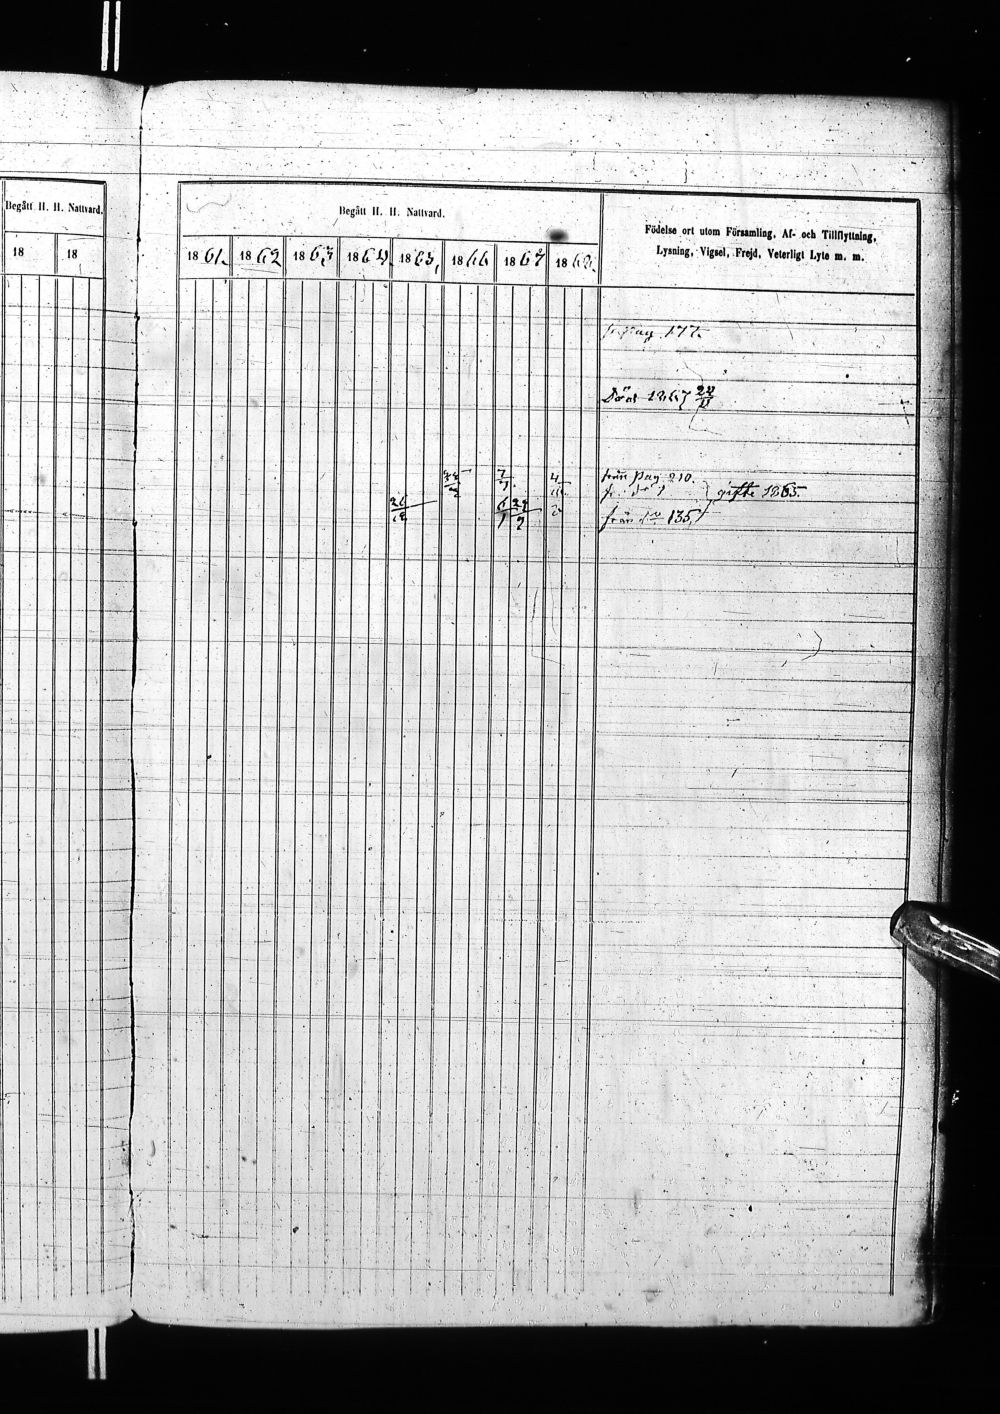 Begått H. H. Nattvard.
18 18
Begått H. H. Nattvard.
1861. 1862 1863 1864 1865, 1866 1867 1868.
Födelse ort utom Församling, Af- och Tillflyttning,
Lysning, Vigsel, Frejd, Veterligt Lyte m. m.
pag 177.
Död 1867
från Pag 210.
gifte 1865.
26
12
22
7
7
6 29
7
från do 135